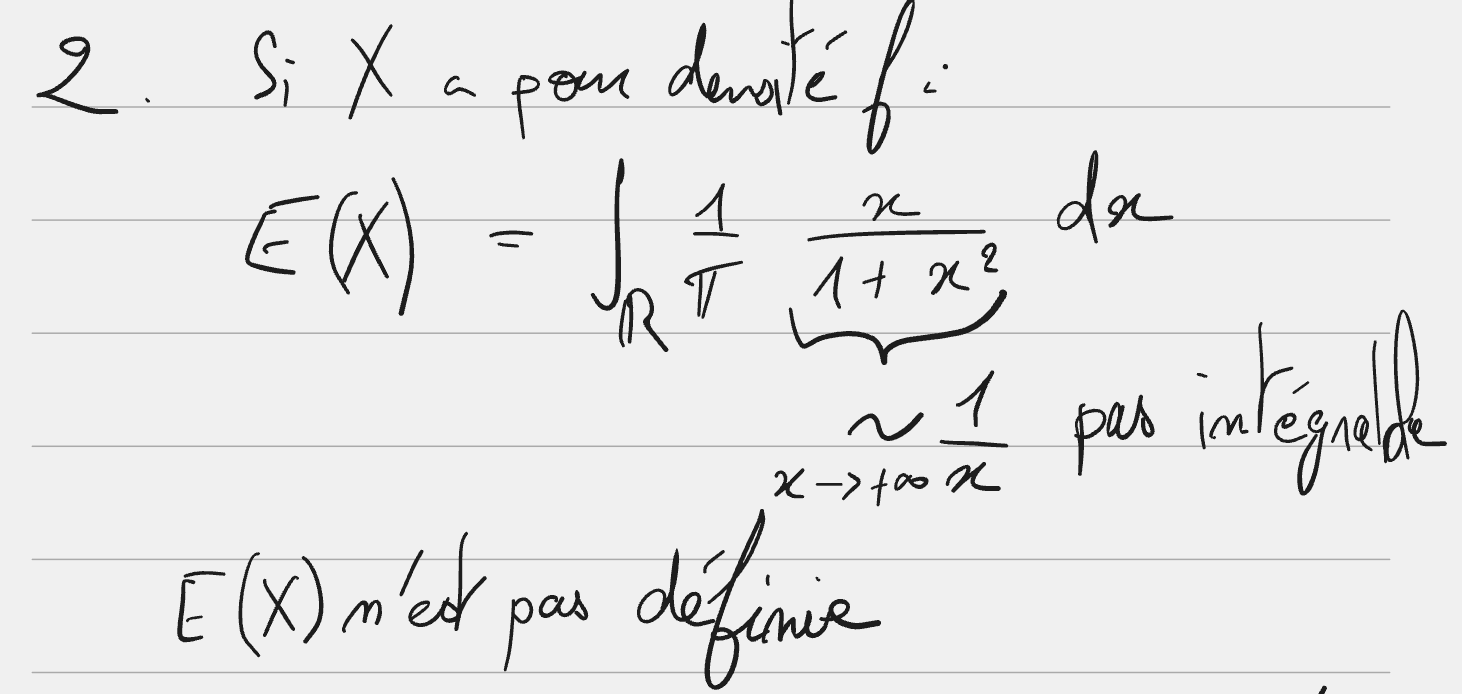 2. Si X a pour densité f :
E(X) = ∫_ℝ 1/π x/(1 + x²) dx
∼_{x→+∞} 1/x pas intégrable
E(X) n'est pas définie